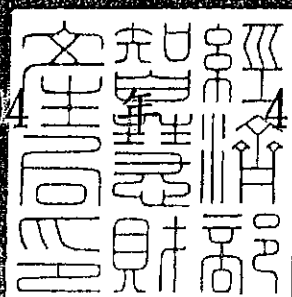 經濟部
智慧財
產局印
4 年 4